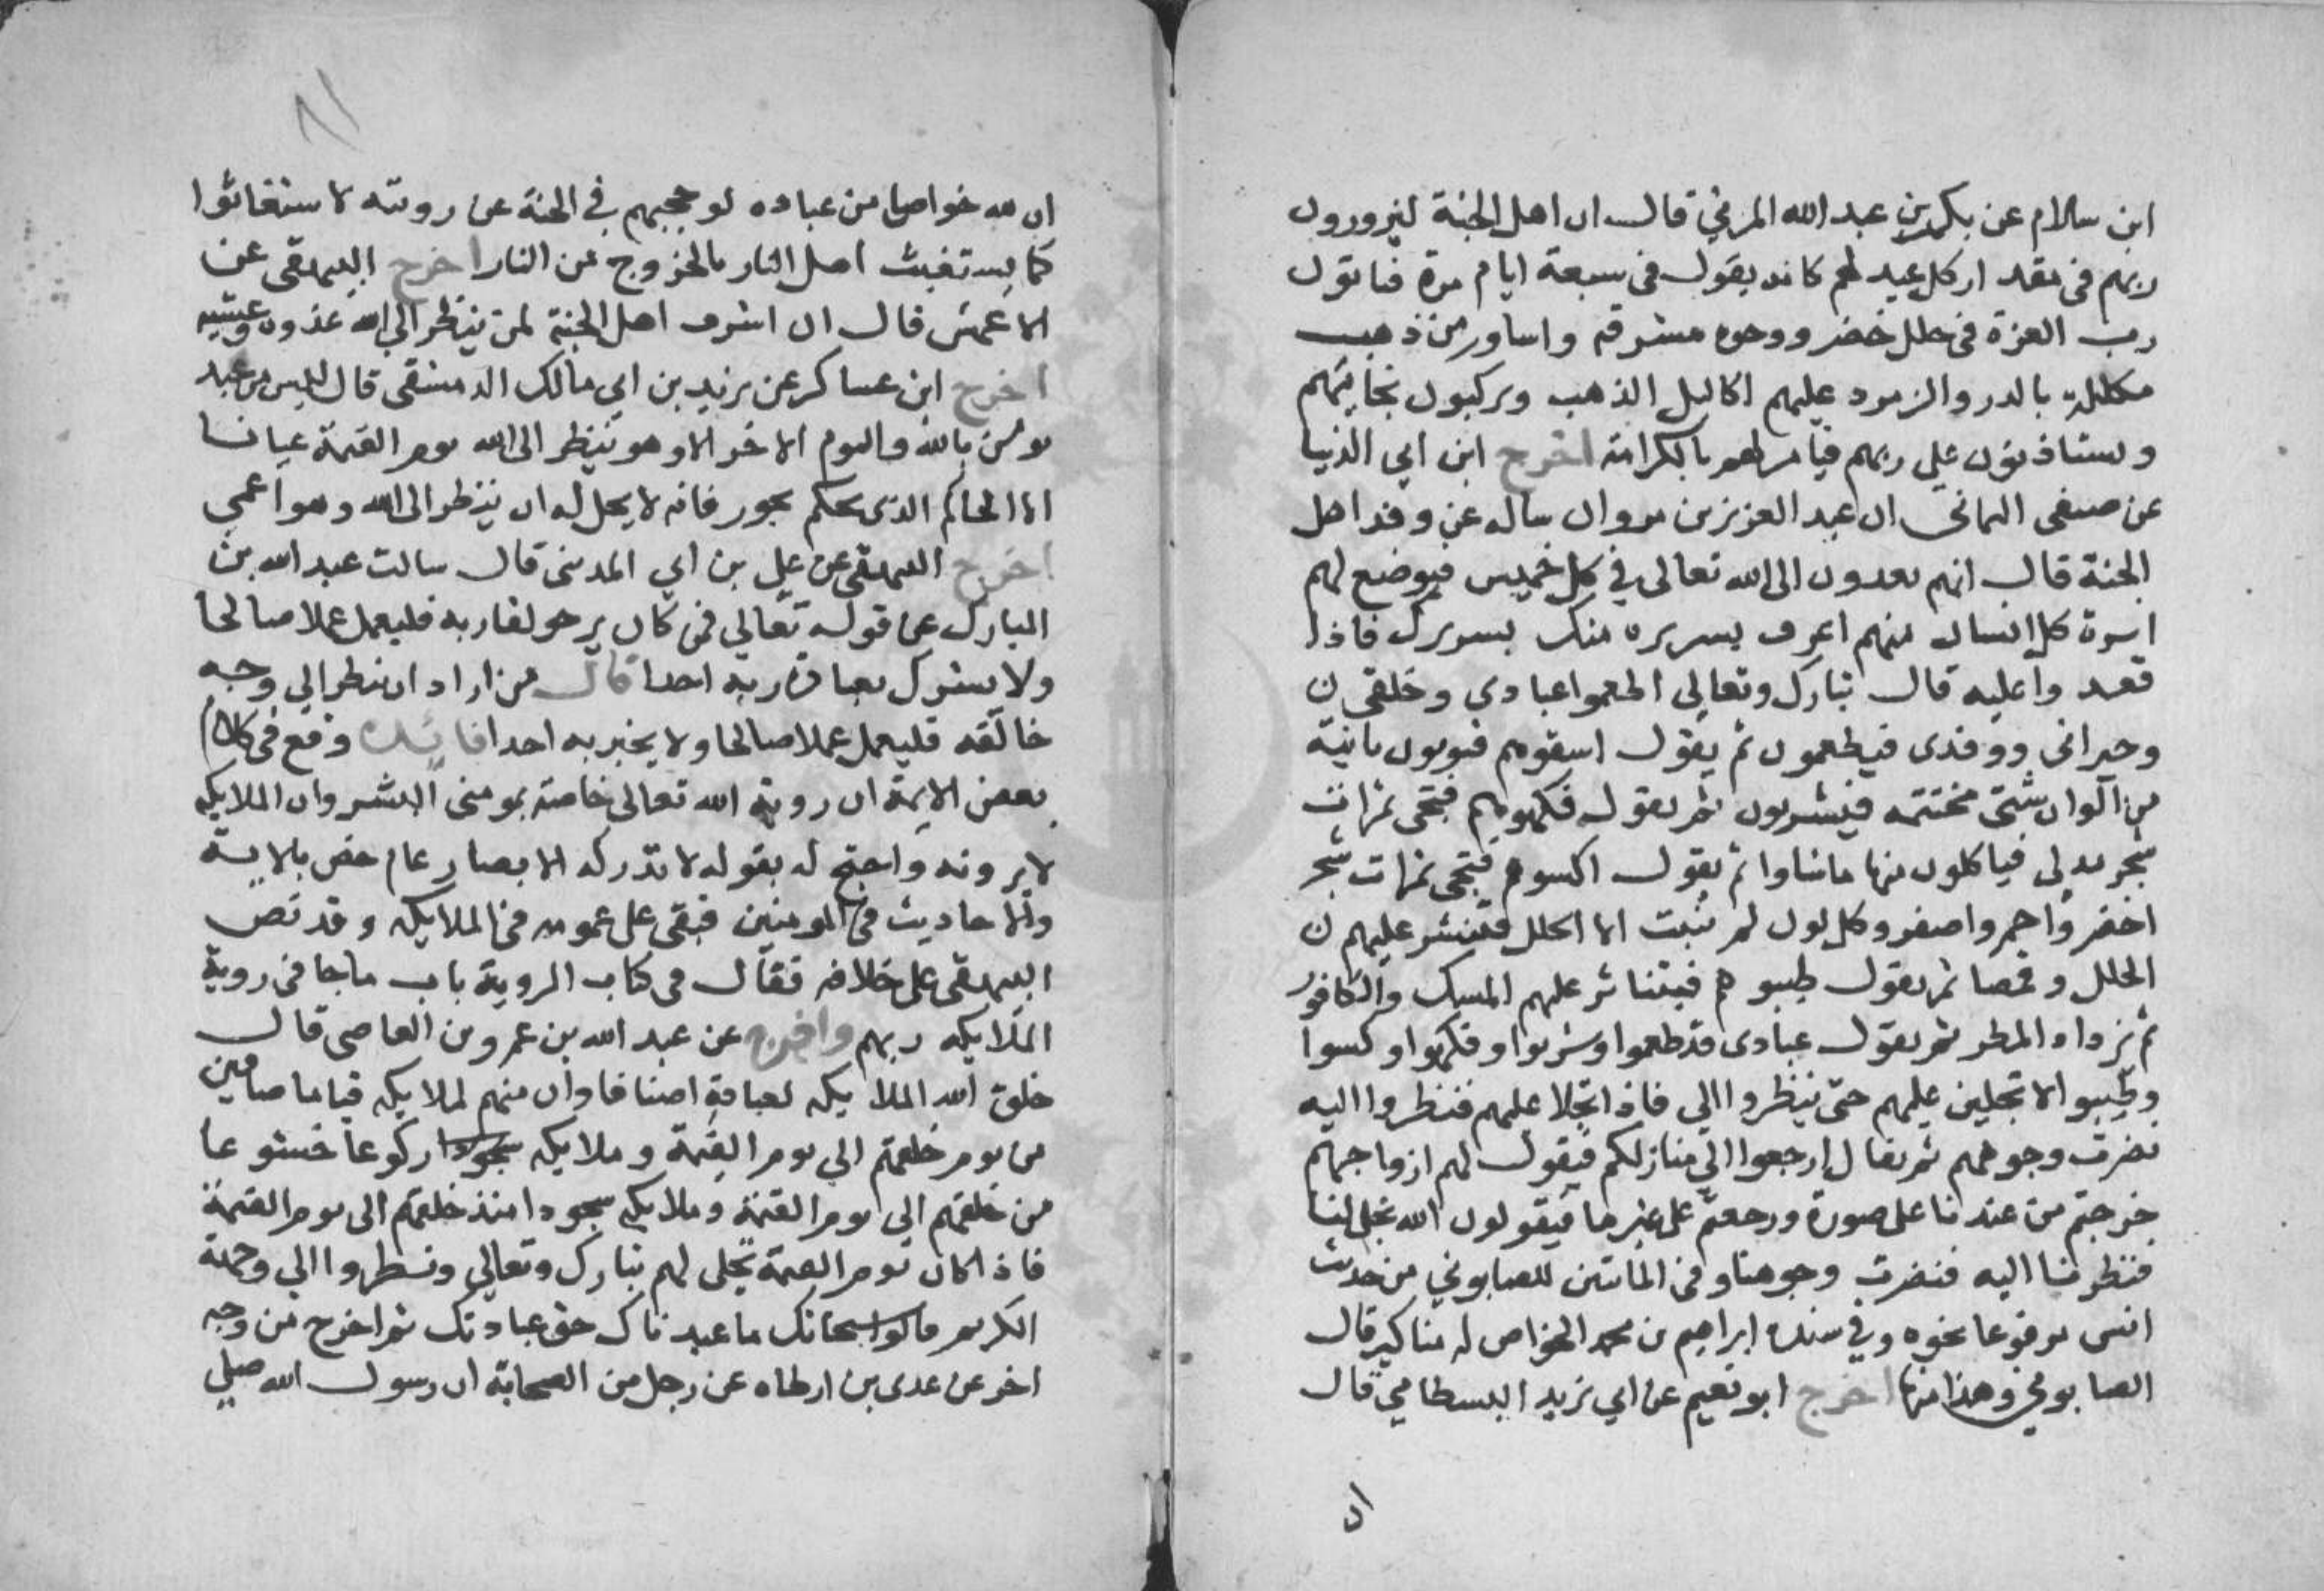 ابن سلام عن بكر بن عبد الله المزني قال ان اهل الجنة ليزورون
ربهم في مقدار كل عيد لهم كانه يقول في سبعة ايام مرة فياتون
رب العزة في حلل خضر ووجوه مشرقه واساور من ذهب
مكللة بالدر والزمرد عليهم اكاليل الذهب ويركبون نجايبهم
ويستاذنون علي ربهم فيامر لهم بالكرامة اخرج ابن ابي الدنيا
عن صيفي اليماني ان عبد العزيز بن مروان ساله عن وفد اهل
الجنة قال انهم يفدون الى الله تعالى في كل خميس فيوضع لهم
اسرة كل انسان منهم اعرف بسريره منك بسريرك فاذا
قعدوا عليه قال تبارك وتعالى اطعموا عبادي وخلقي
وجيراني ووفدي فيطعمون ثم يقول اسقوهم فيوتون بانية
من الوان شتى مختتمه فيشربون ثم يقول فكهوهم فتجى ثمرات
شجر مدلى فياكلون منها ماشاوا ثم يقول اكسوهم فتجى ثمرات شجر
اخضر واحمر واصفر وكل لون لم تنبت الا الحلل فتنشر عليهم
الحلل وقمصا ثم يقول طيبوهم فيتناثر عليهم المسك والكافور
ثم رذاذ المطر ثم يقول عبادى قد طعموا وشربوا وفكهوا وكسوا
وطيبوا لاتجلين عليهم حتى ينظروا الي فاذا تجلا عليهم فنظروا اليه
نضرت وجوههم ثم يقال ارجعوا الي منازلكم فيقول لهم ازواجهم
خرجتم من عندنا على صورة ورجعتم على غيرها فيقولون الله تجلى لنا
فنظرنا اليه فنضرت وجوهنا وفي الماتين للصابوني من حديث
انس مرفوعا نحوه وفي سنده ابراهيم بن محمد الخواص له مناكير قال
الصابوني وهذا منها اخرج ابو نعيم عن ابي يزيد البسطامي قال
ان لله خواصا من عباده لو حجبهم في الجنة عن رويته لاستغاثوا
كما يستغيث اهل النار بالخروج من النار اخرج البيهقى عن
الاعمش قال ان اشرف اهل الجنة لمن ينظر الي الله غدوه وعشيه
اخرج ابن عساكر عن يزيد بن ابي مالك الدمشقى قال ليس من عبد
يومن بالله واليوم الاخر الا وهو ينظر الى الله يوم القيمة عيانا
الا الحاكم الذى يحكم بجور فانه لا يحل له ان ينظر الى الله وهو اعمى
اخرج البيهقى عن علي بن ابي المدينى قال سالت عبد الله بن
المبارك عن قوله تعالي فمن كان يرجو لقا ربه فليعمل عملا صالحا
ولا يشرك بعبادة ربه احدا قال من اراد ان ينظر الي وجه
خالقه فليعمل عملا صالحا ولا يخبر به احدا فايده وقع في كلام
بعض الايمة ان روية الله تعالى خاصة بمومنى البشر وان الملايكه
لا يرونه واحتج له بقوله لا تدركه الابصار عام خص بالاية
والاحاديث في المومنين فبقى على عمومه في الملايكه وقد نص
البيهقى على خلافه فقال في كتاب الروية باب ماجا في روية
الملايكه ربهم واخرج عن عبد الله بن عمرو بن العاصي قال
خلق الله الملايكه لعبادته اصنافا وان منهم لملايكه قياما صافين
من يوم خلقهم الي يوم القيمة وملايكه ركوعا خشوعا
من خلقهم الي يوم القيمة وملايكه سجودا منذ خلقهم الى يوم القيمة
فاذا كان يوم القيمة تجلى لهم تبارك وتعالى ونظروا الي وجهه
الكريم قالوا سبحانك ما عبدناك حق عبادتك ثم اخرج من وجه
اخر عن عدى بن ارطاه عن رجل من الصحابة ان رسول الله صلي